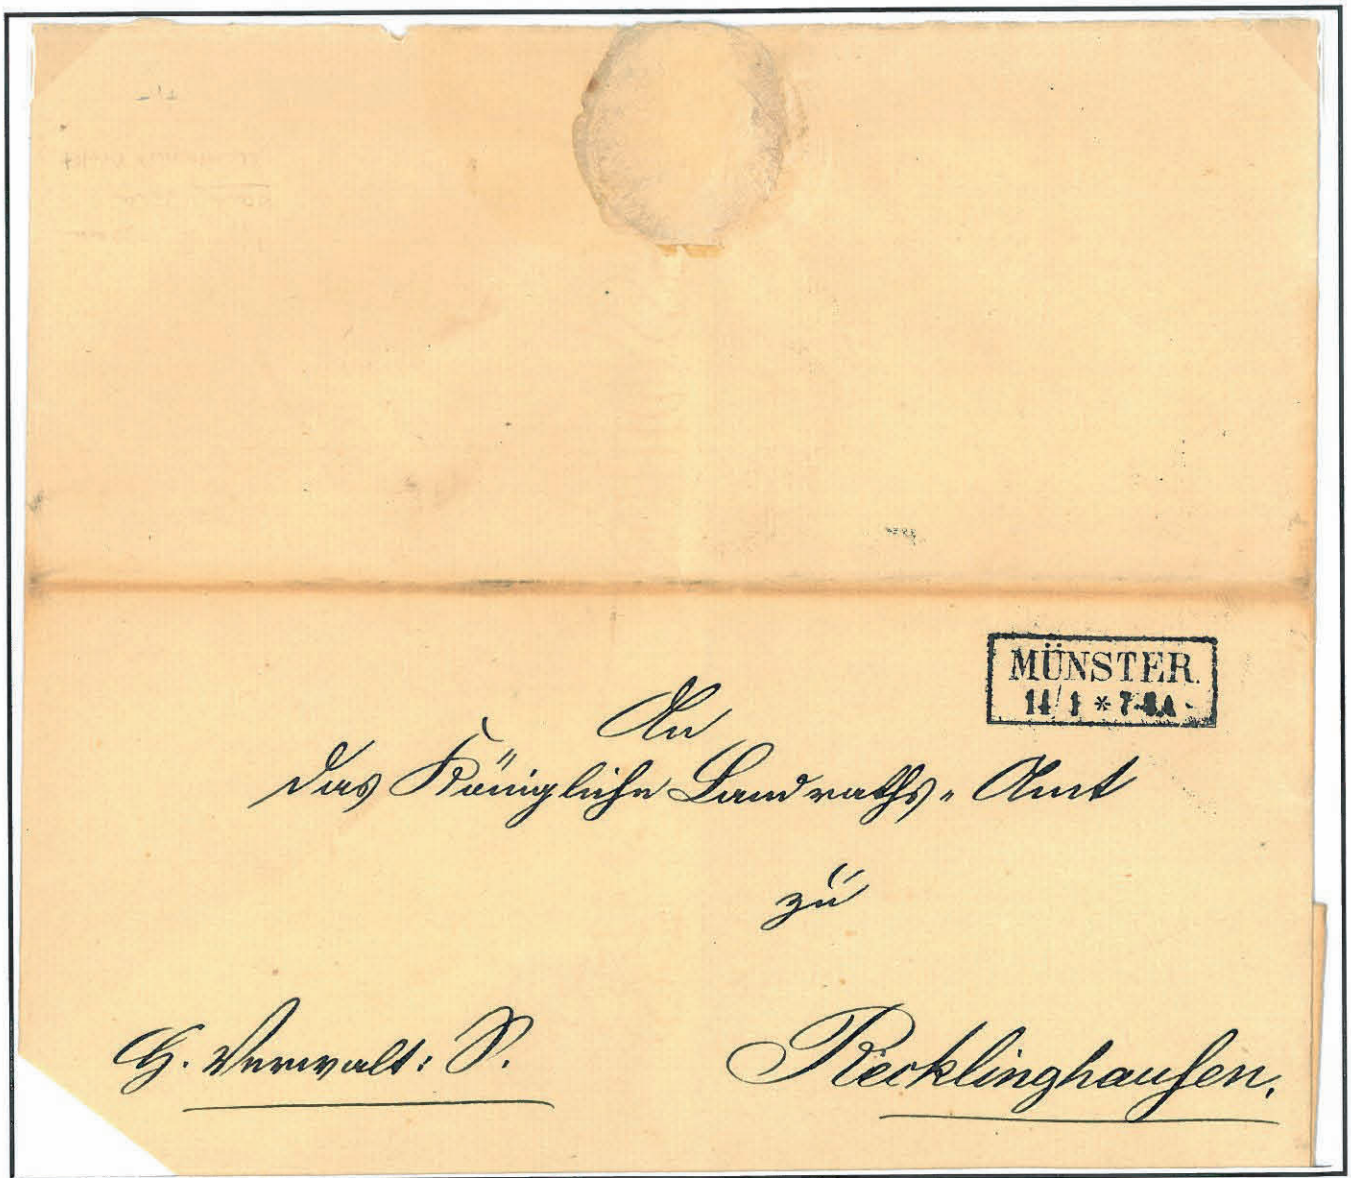 MÜNSTER.
14/1 * 7-8.A
An
das Königliche Landraths-Amt
zu
G. Verwalt: S.
Recklinghausen.